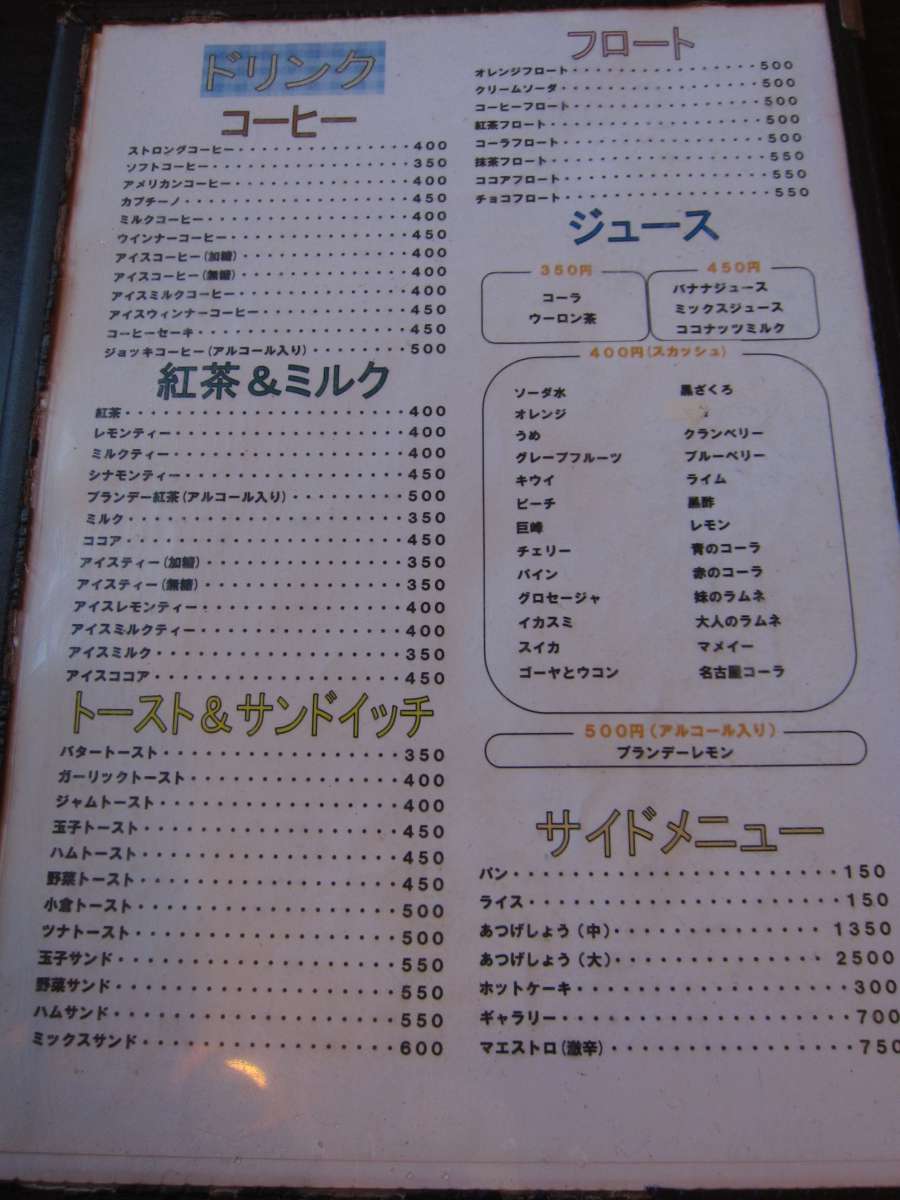 ドリンク
コーヒー
ストロングコーヒー・・・・・・・・・・・・・・・400
ソフトコーヒー・・・・・・・・・・・・・・・・・350
アメリカンコーヒー・・・・・・・・・・・・・・・400
カプチーノ・・・・・・・・・・・・・・・・・・・450
ミルクコーヒー・・・・・・・・・・・・・・・・・400
ウインナーコーヒー・・・・・・・・・・・・・・・450
アイスコーヒー(加糖)・・・・・・・・・・・・・・400
アイスコーヒー(無糖)・・・・・・・・・・・・・・400
アイスミルクコーヒー・・・・・・・・・・・・・・400
アイスウィンナーコーヒー・・・・・・・・・・・・450
コーヒーセーキ・・・・・・・・・・・・・・・・・450
ジョッキコーヒー(アルコール入り)・・・・・・・・500
紅茶&ミルク
紅茶・・・・・・・・・・・・・・・・・・・・・・400
レモンティー・・・・・・・・・・・・・・・・・・400
ミルクティー・・・・・・・・・・・・・・・・・・400
シナモンティー・・・・・・・・・・・・・・・・・450
ブランデー紅茶(アルコール入り)・・・・・・・・・500
ミルク・・・・・・・・・・・・・・・・・・・・・350
ココア・・・・・・・・・・・・・・・・・・・・・450
アイスティー(加糖)・・・・・・・・・・・・・・・350
アイスティー(無糖)・・・・・・・・・・・・・・・350
アイスレモンティー・・・・・・・・・・・・・・・400
アイスミルクティー・・・・・・・・・・・・・・・400
アイスミルク・・・・・・・・・・・・・・・・・・350
アイスココア・・・・・・・・・・・・・・・・・・450
トースト&サンドイッチ
バタートースト・・・・・・・・・・・・・・・・・350
ガーリックトースト・・・・・・・・・・・・・・・400
ジャムトースト・・・・・・・・・・・・・・・・・400
玉子トースト・・・・・・・・・・・・・・・・・・450
ハムトースト・・・・・・・・・・・・・・・・・・450
野菜トースト・・・・・・・・・・・・・・・・・・450
小倉トースト・・・・・・・・・・・・・・・・・・500
ツナトースト・・・・・・・・・・・・・・・・・・500
玉子サンド・・・・・・・・・・・・・・・・・・・550
野菜サンド・・・・・・・・・・・・・・・・・・・550
ハムサンド・・・・・・・・・・・・・・・・・・・550
ミックスサンド・・・・・・・・・・・・・・・・・600
フロート
オレンジフロート・・・・・・・・・・・・・・・・500
クリームソーダ・・・・・・・・・・・・・・・・・500
コーヒーフロート・・・・・・・・・・・・・・・・500
紅茶フロート・・・・・・・・・・・・・・・・・・500
コーラフロート・・・・・・・・・・・・・・・・・500
抹茶フロート・・・・・・・・・・・・・・・・・・550
ココアフロート・・・・・・・・・・・・・・・・・550
チョコフロート・・・・・・・・・・・・・・・・・550
ジュース
350円
コーラ
ウーロン茶
450円
バナナジュース
ミックスジュース
ココナッツミルク
400円(スカッシュ)
ソーダ水
オレンジ
うめ
グレープフルーツ
キウイ
ピーチ
巨峰
チェリー
パイン
グロセージャ
イカスミ
スイカ
ゴーヤとウコン
黒ざくろ
クランベリー
ブルーベリー
ライム
黒酢
レモン
青のコーラ
赤のコーラ
妹のラムネ
大人のラムネ
マメイー
名古屋コーラ
500円(アルコール入り)
ブランデーレモン
サイドメニュー
パン・・・・・・・・・・・・・・・・・・・・・・150
ライス・・・・・・・・・・・・・・・・・・・・・150
あつげしょう(中)・・・・・・・・・・・・・・1350
あつげしょう(大)・・・・・・・・・・・・・・2500
ホットケーキ・・・・・・・・・・・・・・・・・・300
ギャラリー・・・・・・・・・・・・・・・・・・・700
マエストロ(激辛)・・・・・・・・・・・・・・・・750